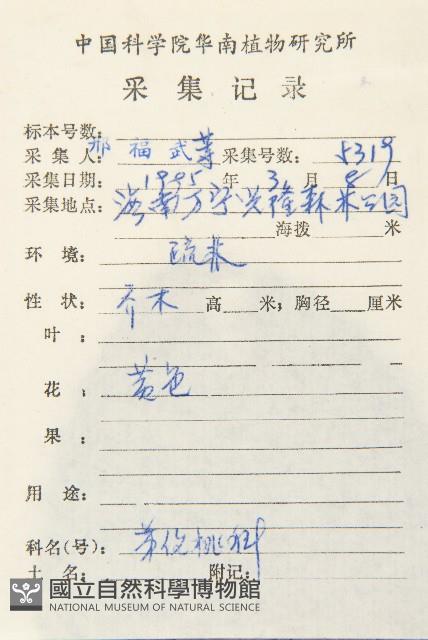 中国科学院华南植物研究所
采集记录
标本号数:
采集人: 邢福武等 采集号数: 5319
采集日期: 1995年3月8日
采集地点: 海南万宁兴隆森林公园
海拨 米
环境: 疏林
性状: 乔木 高 米; 胸径 厘米
叶:
花: 黄色
果:
用途:
科名(号): 第伦桃科
土名: 附记:
國立自然科學博物館
NATIONAL MUSEUM OF NATURAL SCIENCE